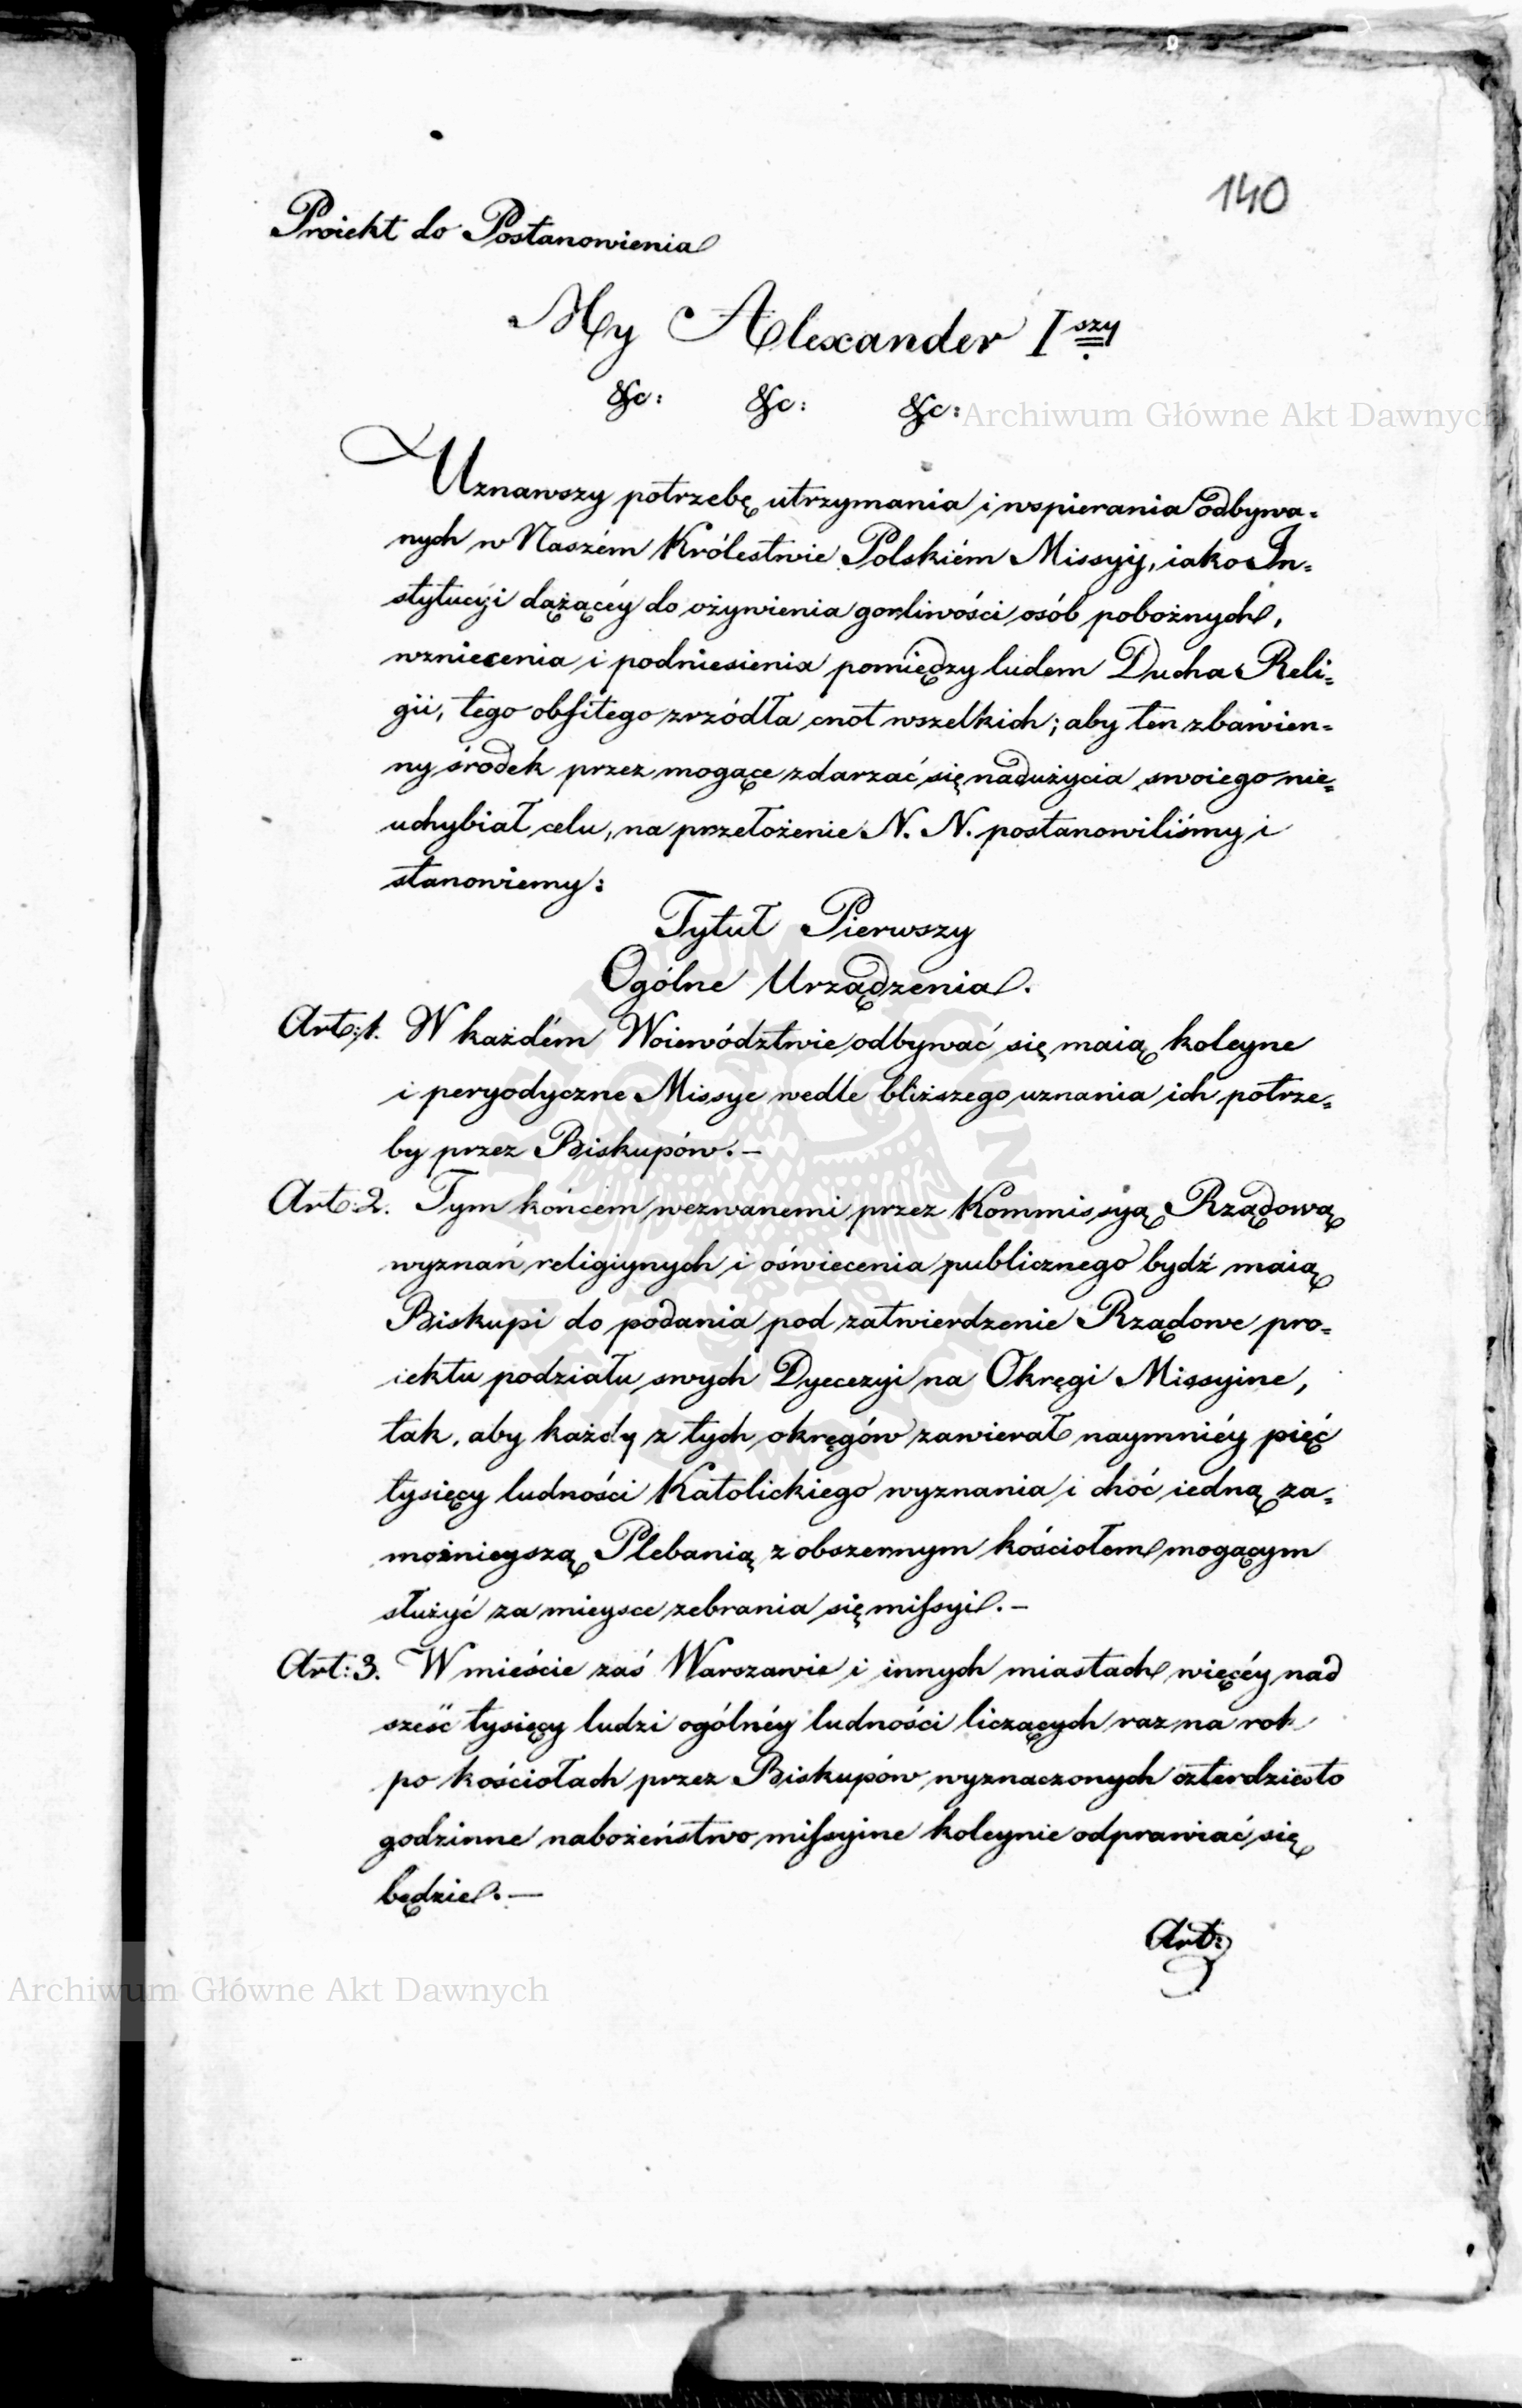 140
Proiekt do Postanowienia
My Alexander Iszy
&c: &c: &c:
Archiwum Główne Akt Dawnych
Uznawszy potrzebę utrzymania i wspierania odbywa=
nych w Naszém Królestwie Polskiém Missyij, iako In=
stytucyi dążącéy do ożywienia gorliwości osób pobożnych,
wzniecenia i podniesienia pomiędzy ludem Ducha Reli=
gii, tego obfitego zrzódła cnot wszelkich; aby ten zbawien=
ny środek przez mogące zdarzać się nadużycia swoiego nie=
uchybiał celu, na przełożenie N. N. postanowiliśmy i
stanowiemy:
Tytuł Pierwszy
Ogólne Urządzenia.
Art: 1. W każdém Woiewództwie odbywać się maią koleyne
i peryodyczne Missye wedle bliższego uznania ich potrze=
by przez Biskupów.—
Art: 2. Tym końcem wezwanemi przez Kommissyą Rządową
wyznań religiynych i oświecenia publicznego bydź maią
Biskupi do podania pod zatwierdzenie Rządowe pro=
iektu podziału swych Dyecezyi na Okręgi Missyine,
tak, aby każdy z tych okręgów zawierał naymniéy pięć
tysięcy ludności Katolickiego wyznania i choć iedną za=
możnieyszą Plebanią z obszernym kościołem mogącym
służyć za mieysce zebrania się missyi.—
Art: 3. W mieście zaś Warszawie i innych miastach więcéy nad
sześć tysięcy ludzi ogólnéy ludności liczących raz na rok
po kościołach przez Biskupów wyznaczonych czterdziesto
godzinne nabożeństwo missyine koleynie odprawiać się
będzie.—
Art:
Archiwum Główne Akt Dawnych